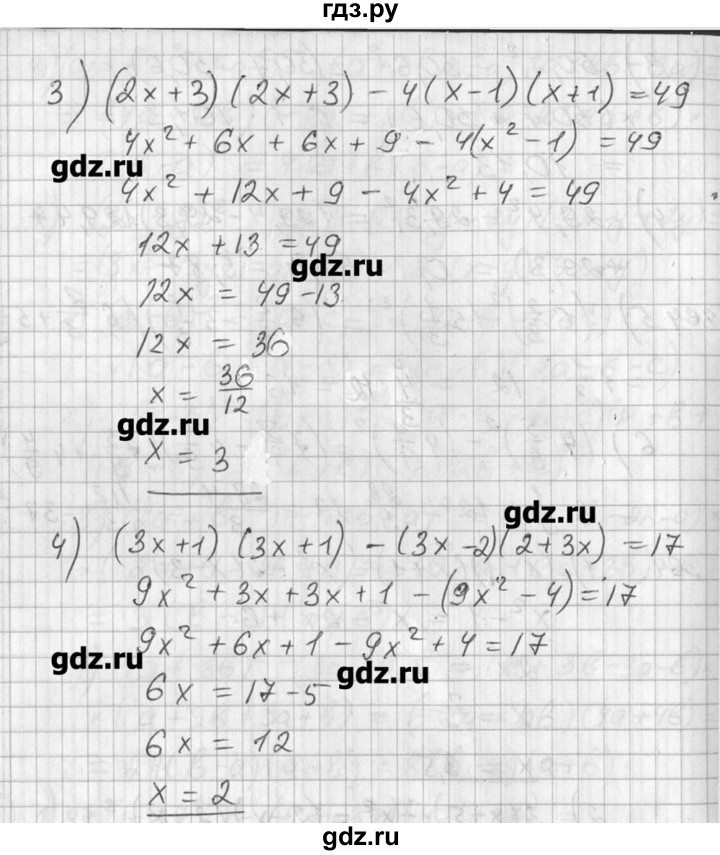 гдз.ру
3) (2x+3)(2x+3) - 4(x-1)(x+1) = 49
4x² + 6x + 6x + 9 - 4(x² - 1) = 49
gdz.ru
4x² + 12x + 9 - 4x² + 4 = 49
12x + 13 = 49
gdz.ru
12x = 49 - 13
12x = 36
x = 36/12
gdz.ru
x = 3
gdz.ru
4) (3x+1)(3x+1) - (3x-2)(2+3x) = 17
9x² + 3x + 3x + 1 - (9x² - 4) = 17
9x² + 6x + 1 - 9x² + 4 = 17
gdz.ru
gdz.ru
6x = 17 - 5
6x = 12
x = 2
gdz.ru